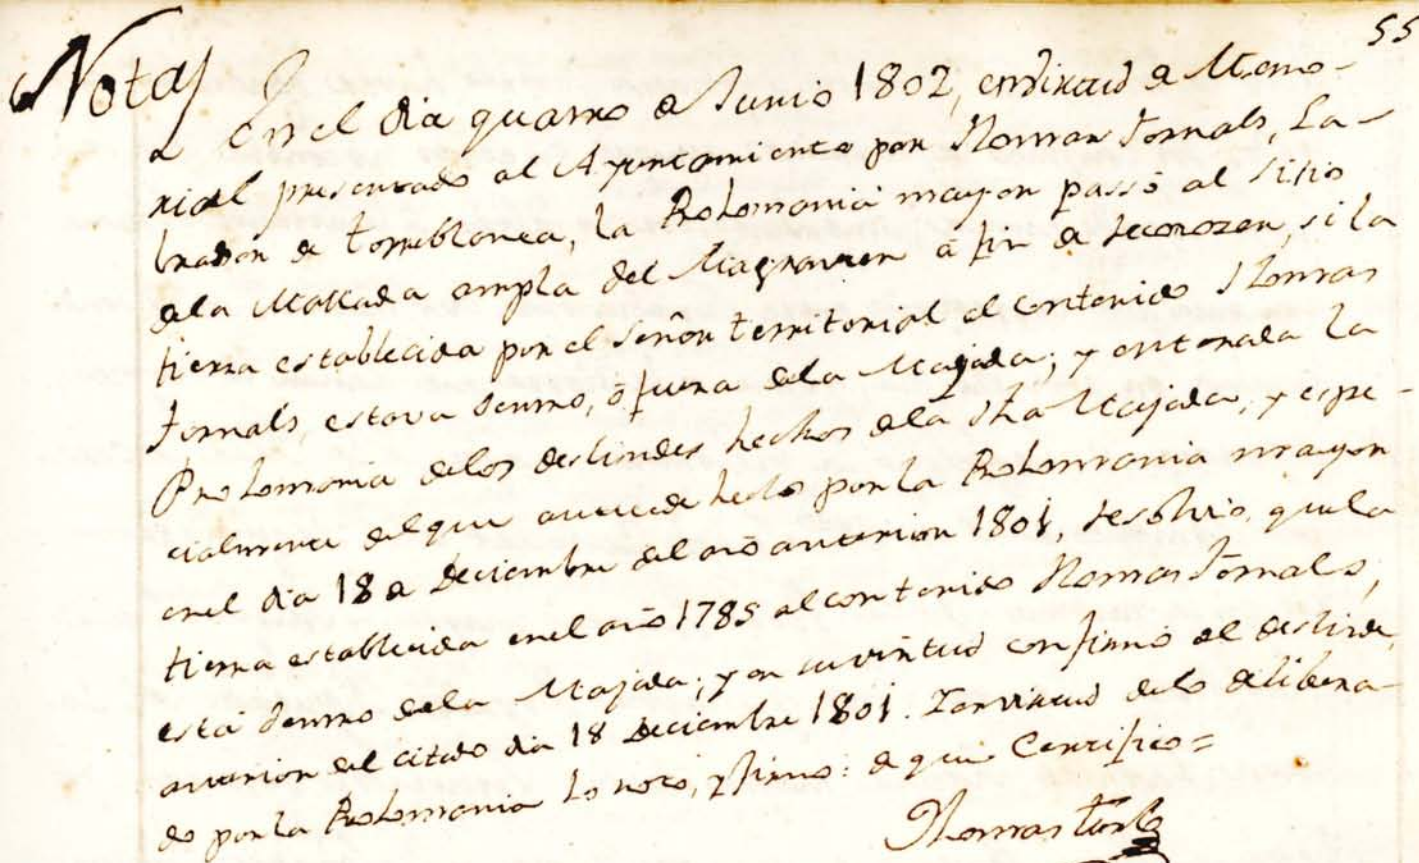 55
Nota/
En el dia quatro de Junio 1802, en virtud de Memo-
rial presentado al Ayuntamiento por Thomas Fornals, La-
brador de Torreblanca, la Prohomania mayor passó al sitio
dela Mallada ampla del a fin de reconozer, si la
tierra establecida por el señor territorial al contenido Thomas
Fornals, estava dentro, ó fuera dela Majada; y enterada la
Prohomania delos deslindes hechos dela dha Majada, y espe-
cialmente del que antecede hecho por la Prohomania mayor
en el dia 18 de Deciembre del año anterior 1801, resolvio, que la
tierra establecida en el año 1785 al contenido Thomas Fornals,
está dentro dela Majada; y en su virtud confirmó el deslinde
anterior del citado dia 18 Deciembre 1801. Y en virtud delo delibera-
do por la Prohomania lo noto, y firmo: de que Certifico =
Thomas